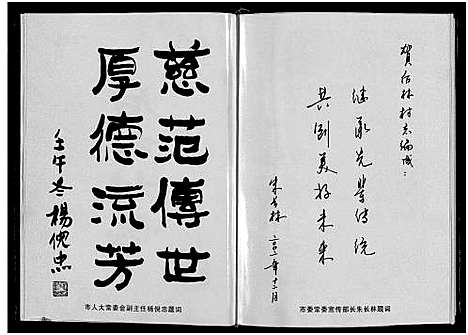 慈范傳世
厚德流芳
壬午冬 楊倪忠
市人大常委会副主任杨倪忠题词
贺后林村志编成：
继承先辈传统
共创美好未来
朱长林 二〇〇二年十二月
市委常委宣传部长朱长林题词